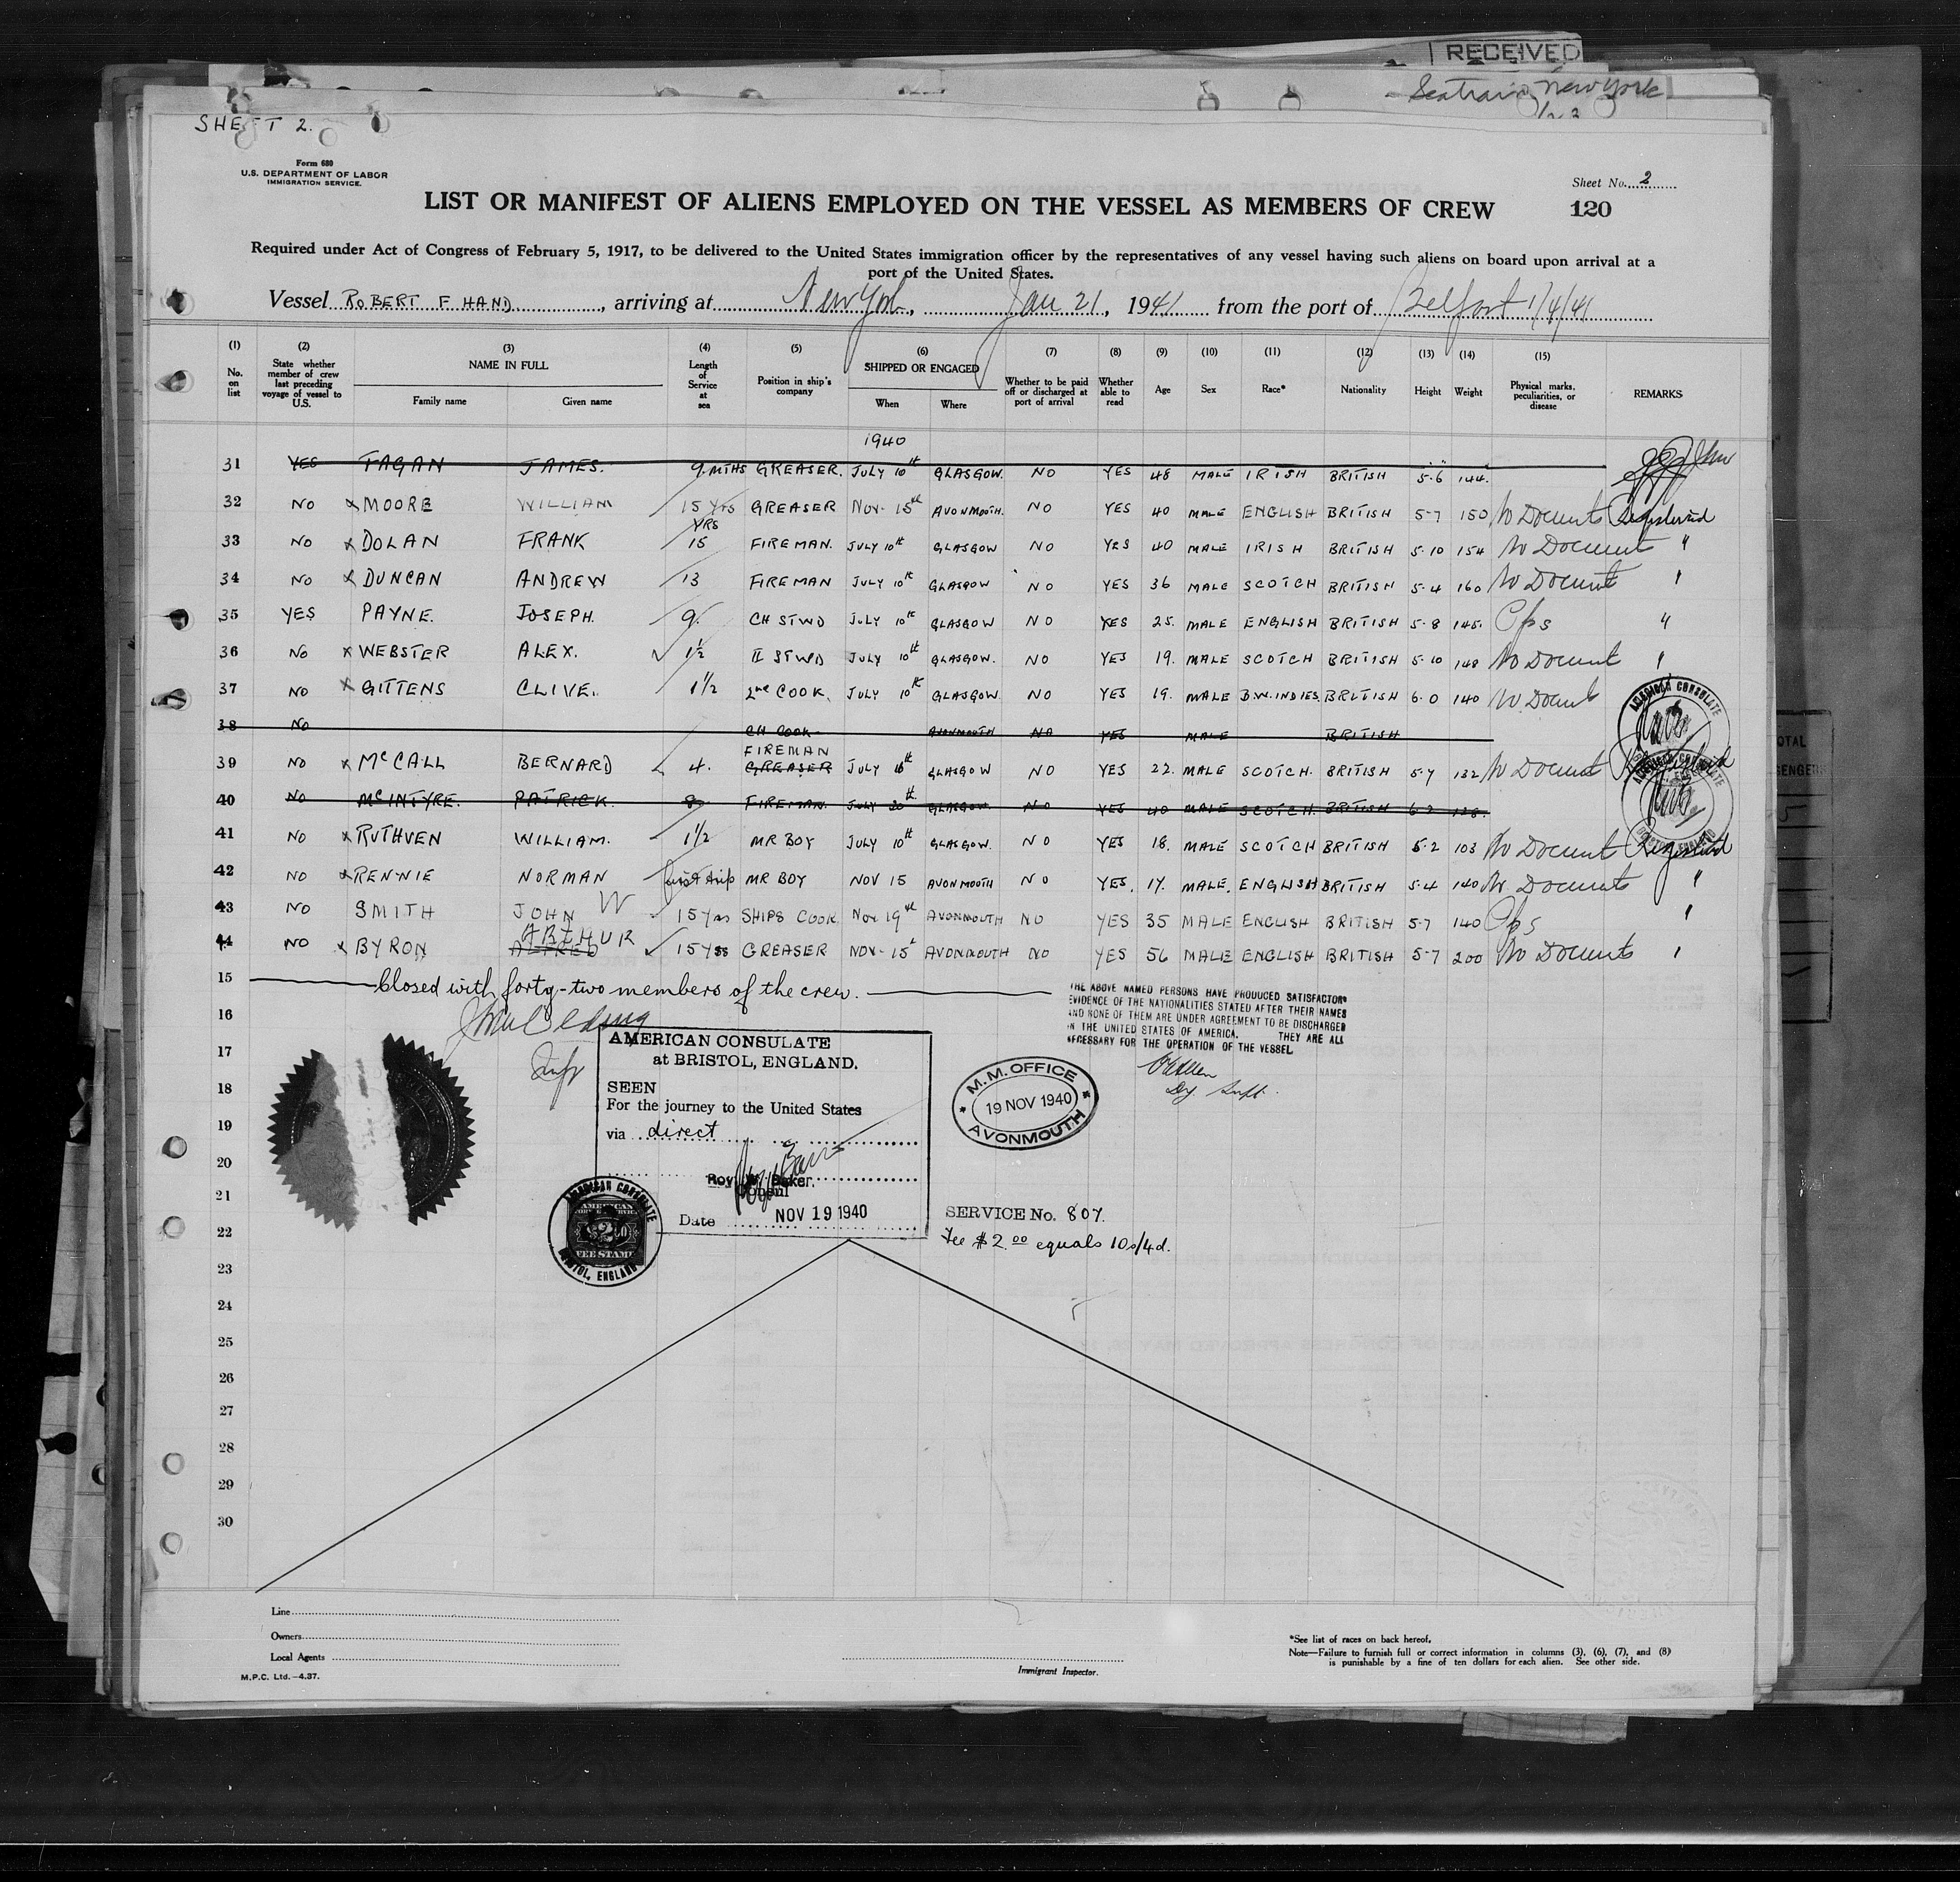 RECEIVED
Seatrain New York
SHEET 2.
Form 680
U.S. DEPARTMENT OF LABOR
IMMIGRATION SERVICE.
Sheet No. 2
LIST OR MANIFEST OF ALIENS EMPLOYED ON THE VESSEL AS MEMBERS OF CREW
120
Required under Act of Congress of February 5, 1917, to be delivered to the United States immigration officer by the representatives of any vessel having such aliens on board upon arrival at a
port of the United States.
Vessel ROBERT F HAND, arriving at New York, Jan 21, 1941 from the port of Belfast 1/4/41
(1) No. on list (2) State whether member of crew last preceding voyage of vessel to U.S. (3) NAME IN FULL Family name Given name (4) Length of Service at sea (5) Position in ship's company (6) SHIPPED OR ENGAGED When Where (7) Whether to be paid off or discharged at port of arrival (8) Whether able to read (9) Age (10) Sex (11) Race* (12) Nationality (13) Height (14) Weight (15) Physical marks, peculiarities, or disease REMARKS
1940
31 YES FAGAN JAMES. 9 MTHS GREASER. JULY 10th GLASGOW. NO YES 48 MALE IRISH BRITISH 5-6 144.
32 NO x MOORE WILLIAM 15 yrs GREASER NOV- 15th AVONMOUTH. NO YES 40 MALE ENGLISH BRITISH 5-7 150 No Documents Registered
33 NO x DOLAN FRANK 15 YRS FIREMAN. JULY 10th GLASGOW NO YES 40 MALE IRISH BRITISH 5-10 154 No Document "
34 NO x DUNCAN ANDREW 13 FIREMAN JULY 10th GLASGOW NO YES 36 MALE SCOTCH BRITISH 5-4 160 No Document "
35 YES PAYNE. JOSEPH. 9. CH STWD JULY 10th GLASGOW NO YES 25. MALE ENGLISH BRITISH 5-8 145. "
36 NO x WEBSTER ALEX. 1½ II STWD JULY 10th GLASGOW. NO YES 19. MALE SCOTCH BRITISH 5-10 148 No Document "
37 NO x GITTENS CLIVE. 1½ 2nd COOK. JULY 10th GLASGOW. NO YES 19. MALE B.W.INDIES. BRITISH 6-0 140 No Docunt
38 NO CH COOK AVONMOUTH NO YES MALE BRITISH
39 NO x McCALL BERNARD 4. FIREMAN GREASER JULY 10th GLASGOW NO YES 22. MALE SCOTCH. BRITISH 5-7 132 No Document Registered
40 NO McINTYRE. PATRICK. 8 FIREMAN. JULY 20th GLASGOW. NO YES 40 MALE SCOTCH. BRITISH 128.
41 NO x RUTHVEN WILLIAM. 1½ MR BOY JULY 10th GLASGOW. NO YES 18. MALE SCOTCH BRITISH 5-2 103 No Document Registered
42 NO x RENNIE NORMAN first trip MR BOY NOV 15 AVONMOUTH NO YES. 17. MALE. ENGLISH BRITISH 5-4 140 No Documents "
43 NO SMITH JOHN W 15 yrs SHIPS COOK Nov 19th AVONMOUTH NO YES 35 MALE ENGLISH BRITISH 5-7 140 "
44 NO x BYRON ARTHUR ALFRED 15 yrs GREASER NOV- 15t AVONMOUTH NO YES 56 MALE ENGLISH BRITISH 5-7 200 No Documents "
15 Closed with forty-two members of the crew.
THE ABOVE NAMED PERSONS HAVE PRODUCED SATISFACTORY
EVIDENCE OF THE NATIONALITIES STATED AFTER THEIR NAMES
AND NONE OF THEM ARE UNDER AGREEMENT TO BE DISCHARGED
IN THE UNITED STATES OF AMERICA. THEY ARE ALL
NECESSARY FOR THE OPERATION OF THE VESSEL
Dy Supt.
16
17
18
19
20
21
22
23
24
25
26
27
28
29
30
AMERICAN CONSULATE
at BRISTOL, ENGLAND.
SEEN
For the journey to the United States
via direct
Roy W. Baker.
Consul
Date NOV 19 1940
AMERICAN CONSULATE
BRISTOL, ENGLAND
AMERICAN
FEE STAMP
M.M. OFFICE
19 NOV 1940
AVONMOUTH
SERVICE No. 807.
Fee $2.00 equals 10s/4d.
AMERICAN CONSULATE
Line
Owners
Local Agents
M.P.C. Ltd.-4.37.
Immigrant Inspector.
*See list of races on back hereof.
Note—Failure to furnish full or correct information in columns (3), (6), (7), and (8)
is punishable by a fine of ten dollars for each alien. See other side.